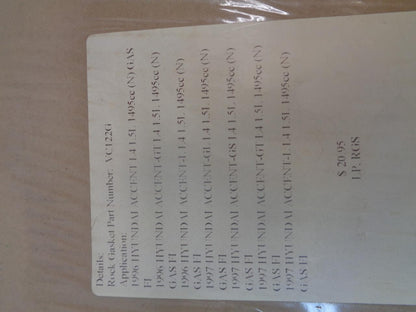 Details:
Rock Gasket Part Number: VC122G
Application:
1996 HYUNDAI ACCENT L4 1.5L 1495cc (N) GAS
FI
1996 HYUNDAI ACCENT-GT L4 1.5L 1495cc (N)
GAS FI
1996 HYUNDAI ACCENT-L L4 1.5L 1495cc (N)
GAS FI
1997 HYUNDAI ACCENT-GL L4 1.5L 1495cc (N)
GAS FI
1997 HYUNDAI ACCENT-GS L4 1.5L 1495cc (N)
GAS FI
1997 HYUNDAI ACCENT-GT L4 1.5L 1495cc (N)
GAS FI
1997 HYUNDAI ACCENT-L L4 1.5L 1495cc (N)
GAS FI
$ 20.95
RGS